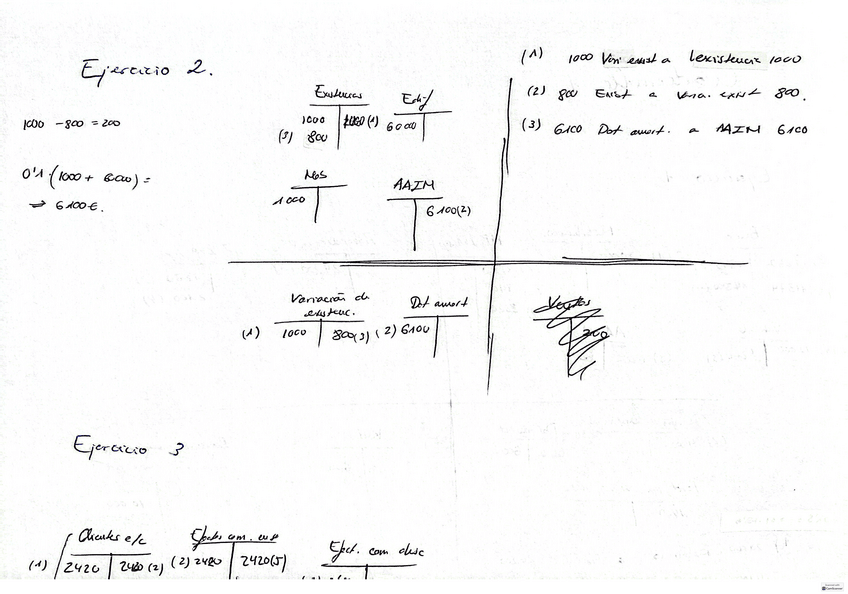 Ejercicio 2.
1000 - 800 = 200
0'1 · (1000 + 6000) =
⇒ 6100 €.
Existencias
1000
(3) 800
(1)
Edif
6000
Mos
1000
AAIM
6100(2)
(1) 1000 Vari exist a 1000
(2) 800 Exist a Varia. exist 800.
(3) 6100 Dot amort. a AAIM 6100
Variación de
existenc.
(1) 1000 800(3)
Dot amort
(2) 6100
Ventas
200
Ejercicio 3
Clientes e/c
(1) 2420 2420 (2)
(2) 2420 2420(5)
Efect. com desc